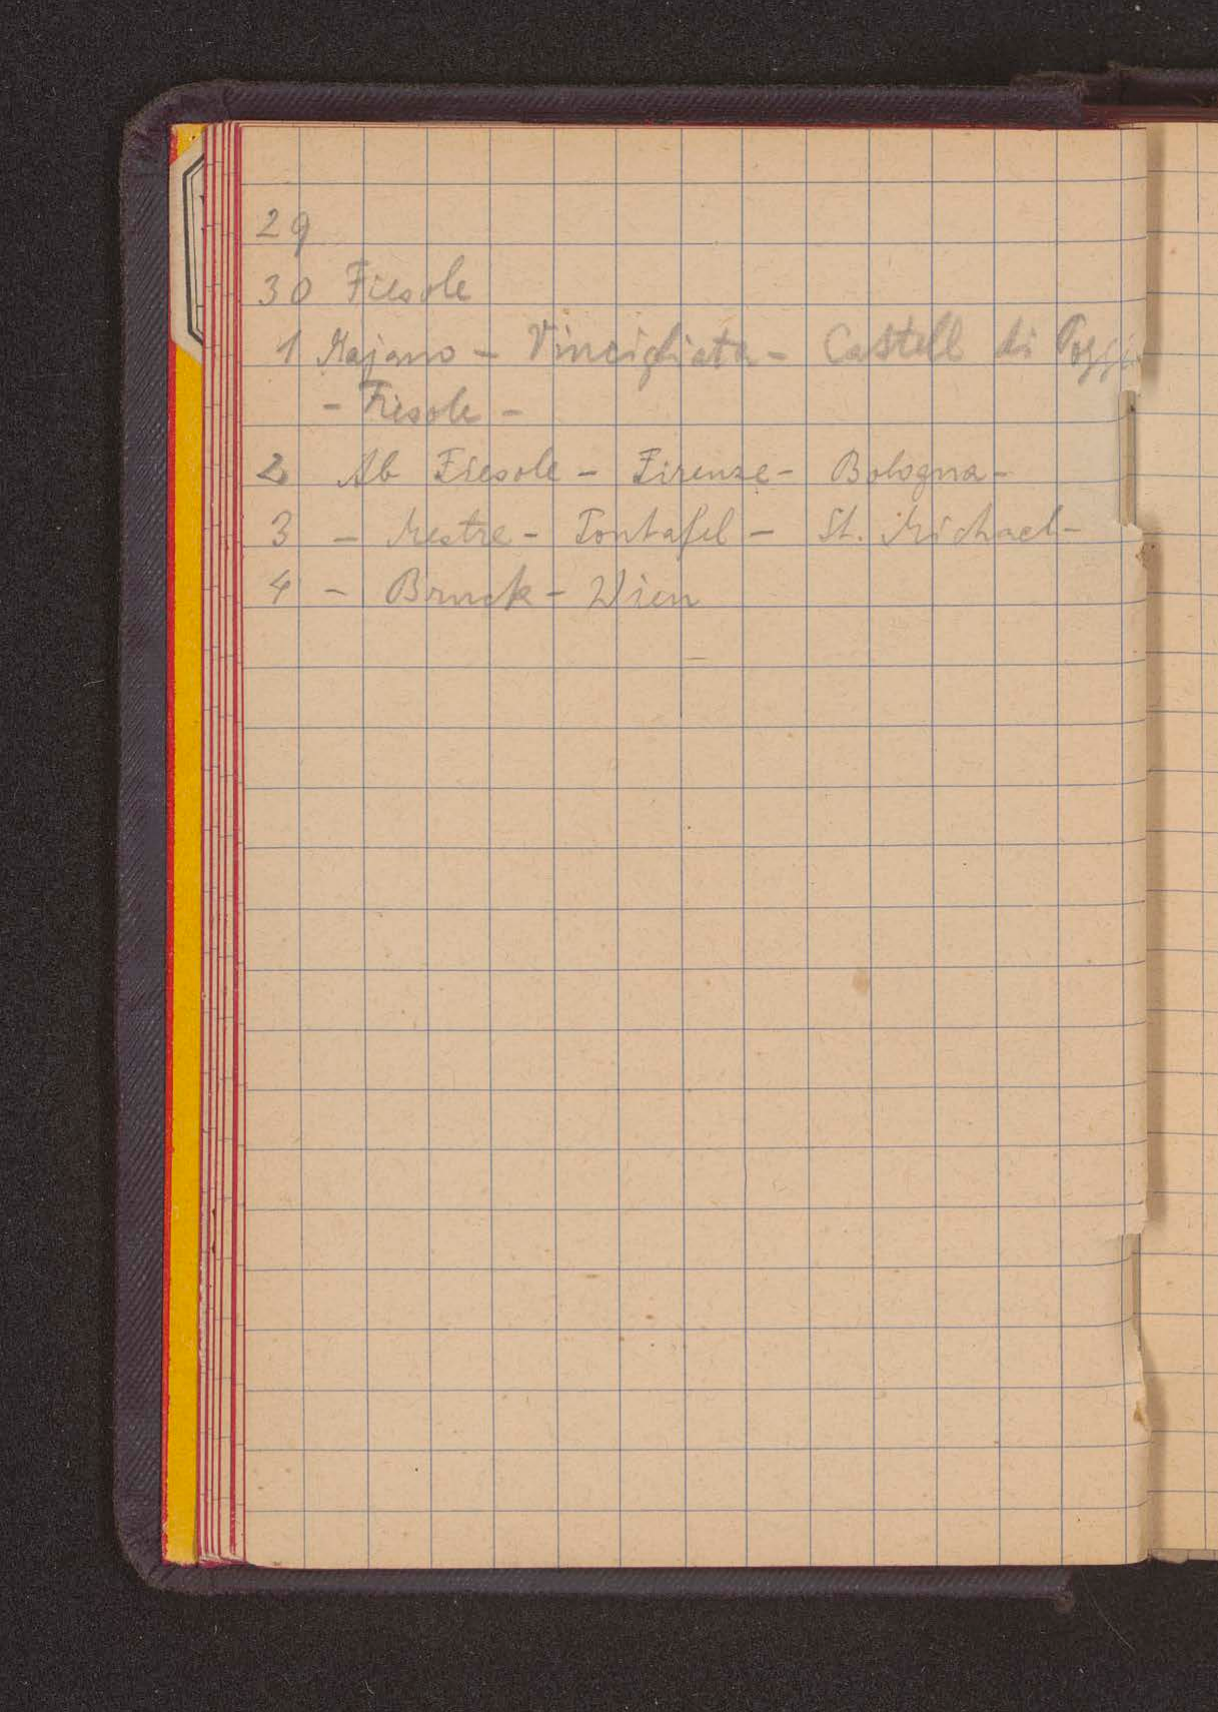 29
30 Fiesole
1 Majano – Vincigliata – Castell di Poggi
– Fiesole –
2 Ab Fiesole – Firenze – Bologna –
3 – Mestre – Pontafel – St. Michael –
4 – Bruck – Wien